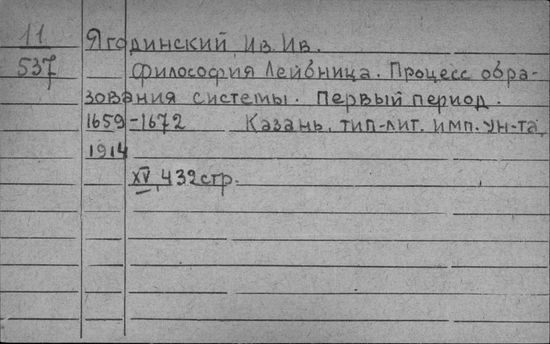 11 Ягодинский, Ив. Ив.
537 Философия Лейбница. Процесс обра-
зования системы. Первый период.
1659-1672 Казань, тип-лит. имп. ун-та,
1914
XV, 432стр.